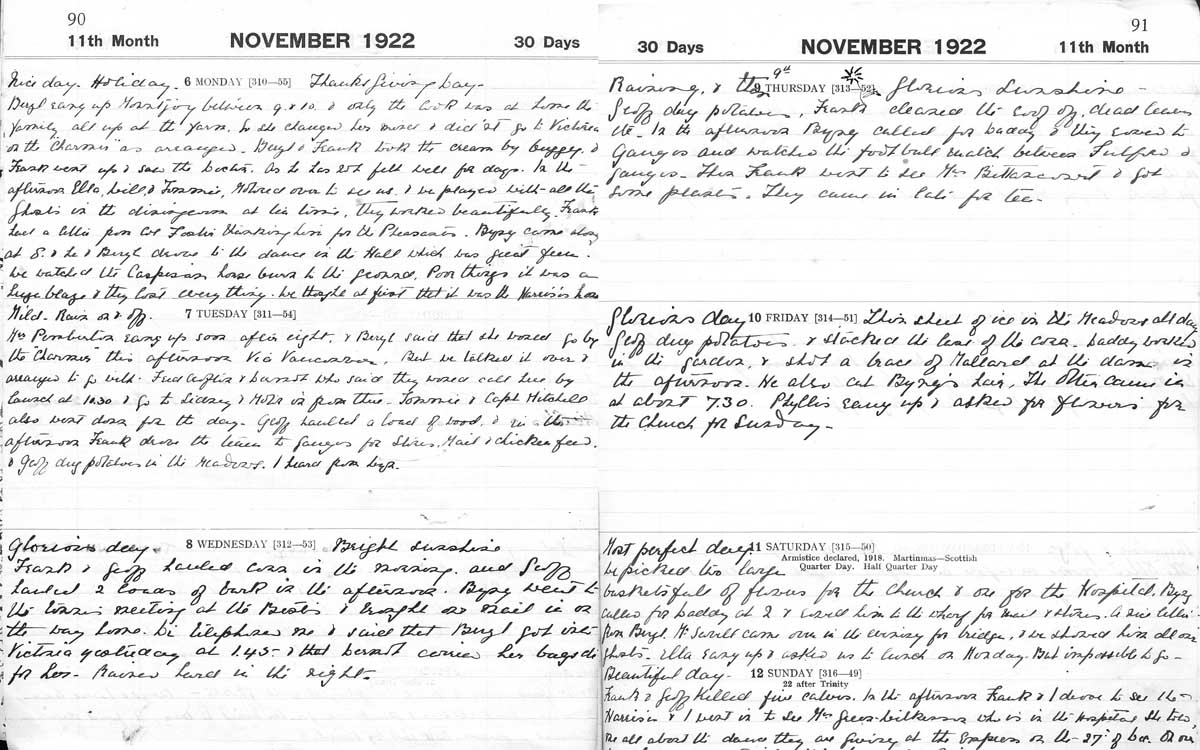 90
11th Month NOVEMBER 1922 30 Days
Nice day. Holiday. 6 MONDAY [310—55] Thanksgiving Day.
Beryl rang up Mountjoy between 9 & 10. & only the Cook was at home the
family all up at the farm. So she changed her mind & did'nt go to Victoria
on the Charmer as arranged. Beryl & Frank took the cream by buggy. &
Frank went up & saw the doctor. As he has not felt well for days. In the
afternoon Ella, Will & Tommie, Motored over to see us. & we played with all the
Ghosts in the diningroom at tea time, they worked beautifully. Frank
had a letter from Col Foster thanking him for the Pheasants. Bypsy came along
at 8. & he & Beryl drove to the dance in the Hall which was great fun.
We watched the house burn to the ground. Poor things it was a
huge blaze & they lost everything. We thought at first that it was the Harrisons house
Mild. Rain on & off. 7 TUESDAY [311—54]
Mrs Pemberton rang up soon after eight. & Beryl said that she would go by
the Charmer this afternoon Via Vancouver. But we talked it over &
arranged to go with Fred Crofton & who said they would call here by
launch at 10.30 & go to Sidney & Motor in from there. Tommie & Capt Mitchell
also went down for the day. Geoff hauled a load of wood, & in the
afternoon Frank drove the team to Ganges for Stores, Mail & chicken feed.
& Geoff dug potatoes in the Meadows. I heard from
Glorious day. 8 WEDNESDAY [312—53] Bright sunshine
Frank & Geoff hauled corn in the morning. and Geoff
hauled 2 loads of bark in the afternoon. Bypsy went to
the Tennis meeting at the & brought our mail in on
the way home. Di telephoned me & said that Beryl got into
Victoria yesterday at 1.45 & that carried her bags &c
for her. Rained hard in the night.
91
30 Days NOVEMBER 1922 11th Month
Raining, & the 9th 9 THURSDAY [313—52] Glorious Sunshine -
Geoff dug potatoes, Frank cleared the roof of dead leaves
etc. In the afternoon Bypsy called for Daddy & they went to
Ganges and watched the football match between Fulford &
Ganges. Then Frank went to see Mrs Bittancourt & got
some plants. They came in late for tea.
Glorious day 10 FRIDAY [314—51] Thin sheet of ice in the Meadows all day
Geoff dug potatoes & stacked the last of the corn. Daddy worked
in the garden, & shot a brace of Mallard at the dam in
the afternoon. He also cut Bypsy's hair. The Otter came in
at about 7.30. Phyllis rang up & asked for flowers for
the Church for Sunday.
Most perfect day. 11 SATURDAY [315—50]
Armistice declared, 1918. Martinmas—Scottish
Quarter Day. Half Quarter Day
We picked two large
basketsful of flowers for the Church & one for the Hospital. Bypsy
called for Daddy at 2 & took him to the wharf for mail & stores. A nice letter
from Beryl. Mr Scovell came over in the evening for bridge, & we showed him all our
ghosts. Ella rang up & asked us to lunch on Monday. But impossible to go.
Beautiful day. 12 SUNDAY [316—49]
22 after Trinity
Frank & Geoff killed five calves. In the afternoon Frank & I drove to see the
Harrisons & I went in to see Mrs Green-Wilkinson who is in the Hospital She told
me all about the dance they are giving at the Empress on the 27th of Dec.